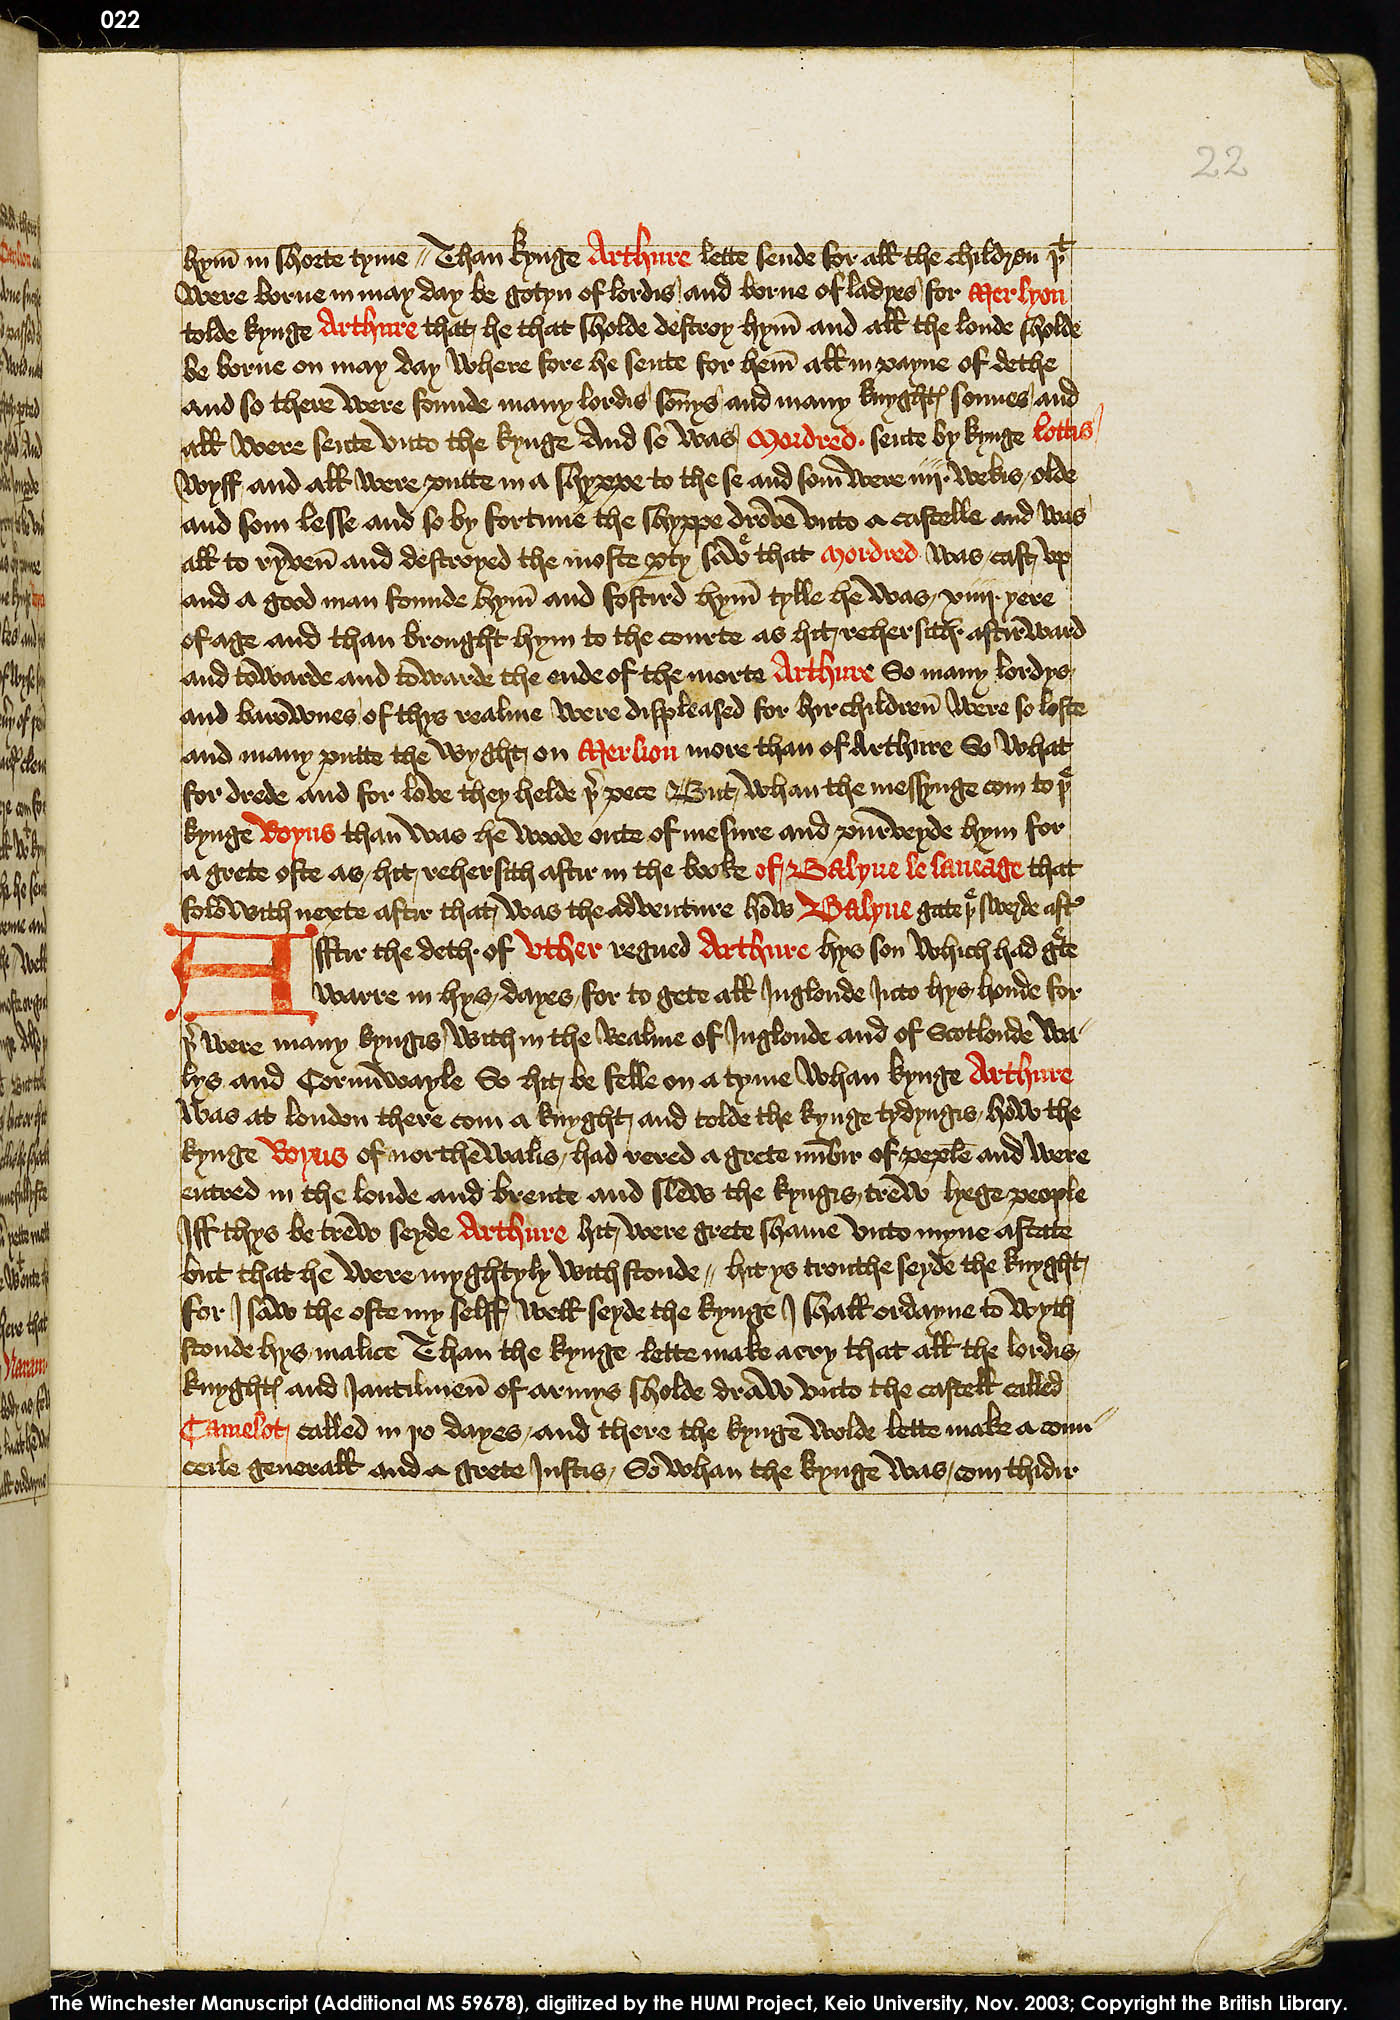 022
22
hym̄ in shorte tyme // Than kynge Arthure lette sende for all the children þt
Were borne in may day be gotyn of lordis and borne of ladyes for Merlyon
tolde kynge Arthure that he that sholde destroy hym̄ and all the londe sholde
be borne on may day Where fore he sente for hem̄ all in payne of dethe
and so there Were founde many lordis son̄ys and many knyghtes sonnes and
all Were sente vnto the kynge And so Was Mordred · sente by kynge lottis
Wyff and all Were putte in a shyppe to the se and som̄ Were iiij · Wekis olde
and som lesse and so by fortune the shyppe drove vnto a castelle and Was
all to ryven̄ and destroyed the moste party save that Mordred Was cast vp
and a good man founde hym̄ and fostird hym̄ tylle he Was xiiij · yere
of age and than brought hym to the courte as hit rehersith aftirward
and towarde and towarde the ende of the morte Arthure So many lordys
and barownes of thys realme Were displeased for hir children̄ Were so loste
and many putte the Wyght on Merlion more than of Arthure So What
for drede and for love they helde þr pece But Whan the messynge com to þe
kynge Royns than Was he Woode oute of mesure and purveyde hym for
a grete oste as hit rehersith aftir in the booke of Balyne le saveage that
folowith nexte aftir that Was the adventure how Balyne gate þe swerde aftr
Afftir the deth of Vther regned Arthure hys son Which had grete
Warre in hys dayes for to gete all Inglonde Into hys honde for
þr Were many kyngis With in the Realme of Inglonde and of Scotlonde Wa
lys and Cornuwayle So hit be felle on a tyme Whan kynge Arthure
Was at london there com a knyght and tolde the kynge tydyngis how the
kynge Royns of northe walis had rered a grete numbir of peple and Were
entred in the londe and brente and slew the kyngis trew lyege people
Iff thys be trew seyde Arthure hit Were grete shame vnto myne astate
but that he Were myghtyly With stonde // hit ys trouthe seyde the knyght
for I saw the oste my selff Well seyde the kynge I shall ordayne to Wyth
stonde hys malice Than the kynge lette make a cry that all the lordis
knyghtes and Jantilmen̄ of armys sholde draw vnto the castell called
Camelot called in þo dayes and there the kynge Wolde lette make a coun
ceile generall and a grete Justis So Whan the kynge Was com thidir
The Winchester Manuscript (Additional MS 59678), digitized by the HUMI Project, Keio University, Nov. 2003; Copyright the British Library.